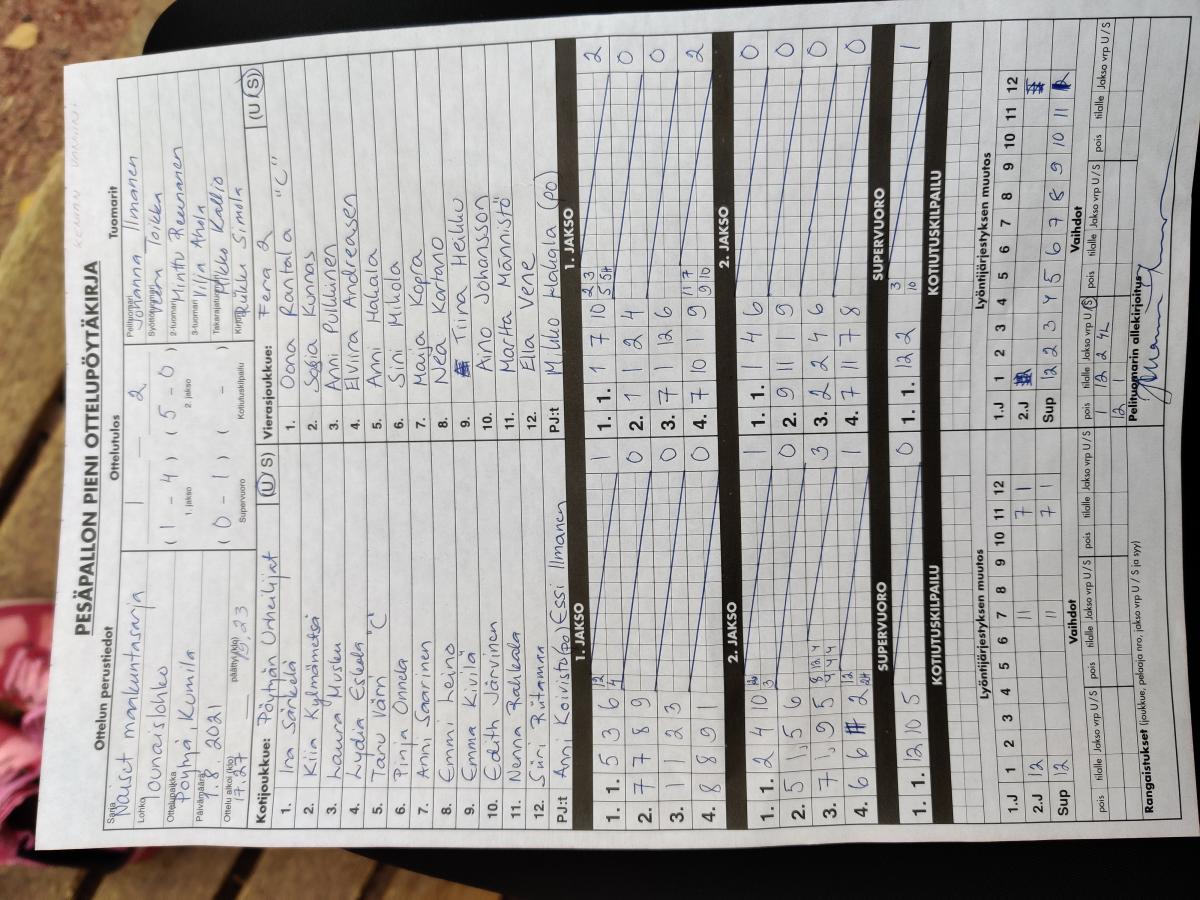 PESÄPALLON PIENI OTTELUPÖYTÄKIRJA
Ottelun perustiedot
Ottelutulos
Tuomarit
Sarja
Naiset maakuntasarja
Lohko
Lounaislohko
Ottelupaikka
Pöytyä, Kumila
Päivämäärä
1.8.2021
Ottelu alkoi (klo)
17.27
päättyi (klo)
1 — 2
( 1 - 4 ) ( 5 - 0 )
1. jakso
2. jakso
( 0 - 1 ) ( - )
Supervuoro
Kotiutuskilpailu
Pelituomari
Johanna Ilmanen
Syöttötuomari
Veera Toikka
2-tuomari
Minttu Reunanen
3-tuomari
Vilja Anola
Takarajatuomari
Mikko Kallio
Kirjuri
Riikka Simola
Kotijoukkue: Pöytyän Urheilijat (U/S)
1. Ina Sänkelä
2. Kiia Kylmämetsä
3. Laura Musku
4. Lydia Eskola
5. Taru Värri "C"
6. Pinja Onnela
7. Anni Saarinen
8. Emmi Leino
9. Emma Kivilä
10. Edith Järvinen
11. Nenna Rahkala
12. Siiri Riitamaa
PJ:t Anni Koivisto (po) Essi Ilmanen
Vierasjoukkue: Fera 2 (U/S)
1. Oona Rantala "C"
2. Kunnas
3. Anni Pulkkinen
4. Elviira Andreasen
5. Anni Hakala
6. Sini Mikola
7. Maija Kopra
8. Nea Kartano
9. Tiina Heikko
10. Aino Johansson
11. Martta Männistö
12. Ella Vene
PJ:t Mikko Hakala (po)
1. JAKSO
1. 1. 5 3 6 12 4 1
2. 7 7 8 9 0
3. 1 1 2 3 0
4. 8 8 9 1 0
1. JAKSO
1. 1. 1 7 10 2
2. 1 1 2 4 0
3. 7 1 12 6 0
4. 7 10 1 9 11 7 9 10 2
2. JAKSO
1. 1. 2 4 10 3 1
2. 5 11 5 6 0
3. 7 1 9 5 3
4. 6 6 2 12 1
2. JAKSO
1. 1. 1 4 6 0
2. 9 11 1 9 0
3. 2 2 4 6 0
4. 7 11 7 8 0
SUPERVUORO
1. 1. 12 10 5 0
SUPERVUORO
1. 1. 12 2 3 10 1
KOTIUTUSKILPAILU
KOTIUTUSKILPAILU
Lyöntijärjestyksen muutos
1.J 1 2 3 4 5 6 7 8 9 10 11 12
2.J 12 11 7 1
Sup 12 11 7 1
Lyöntijärjestyksen muutos
1.J 1 2 3 4 5 6 7 8 9 10 11 12
2.J
Sup 12 2 3 4 5 6 7 8 9 10 11
Vaihdot
pois tilalle Jakso vrp U/S pois tilalle Jakso vrp U/S pois tilalle Jakso vrp U/S
Vaihdot
pois tilalle Jakso vrp U/S pois tilalle Jakso vrp U/S pois tilalle Jakso vrp U/S
1 12 2 4L
12 1
Rangaistukset (joukkue, pelaaja nro, jakso vrp U / S ja syy)
Pelituomarin allekirjoitus